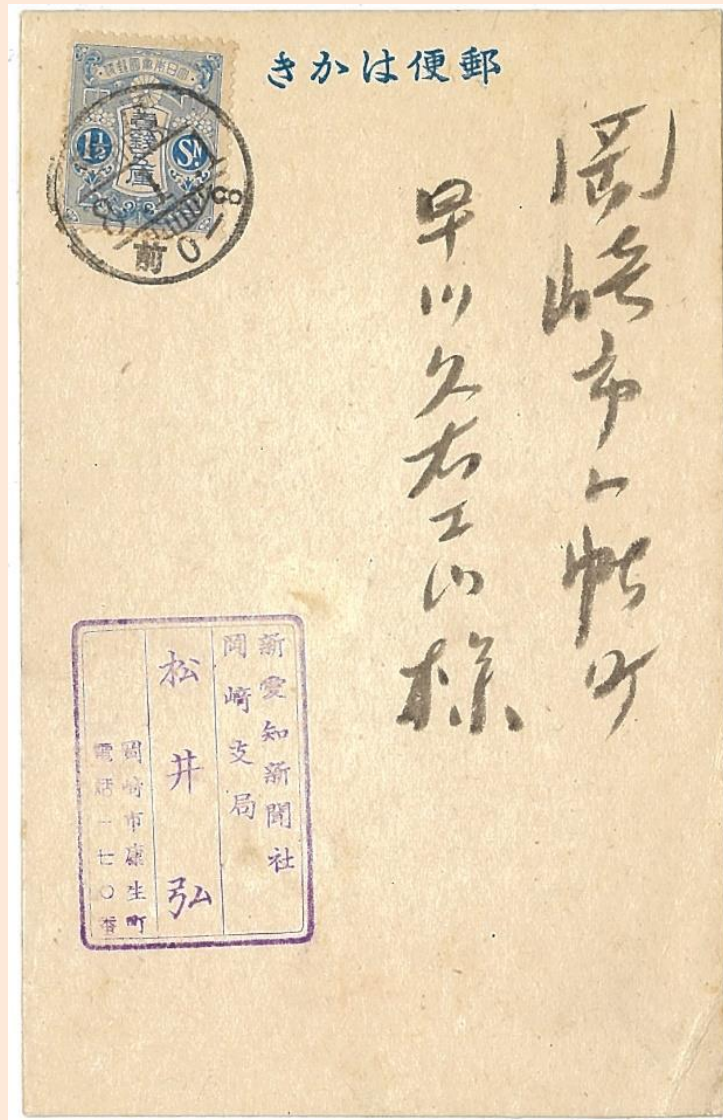 郵便はかき
1½
SN.
前0-8
岡崎市八帖町
早川久右エ門様
新愛知新聞社
岡崎支局
松井弘
岡崎市康生町
電話一七〇番